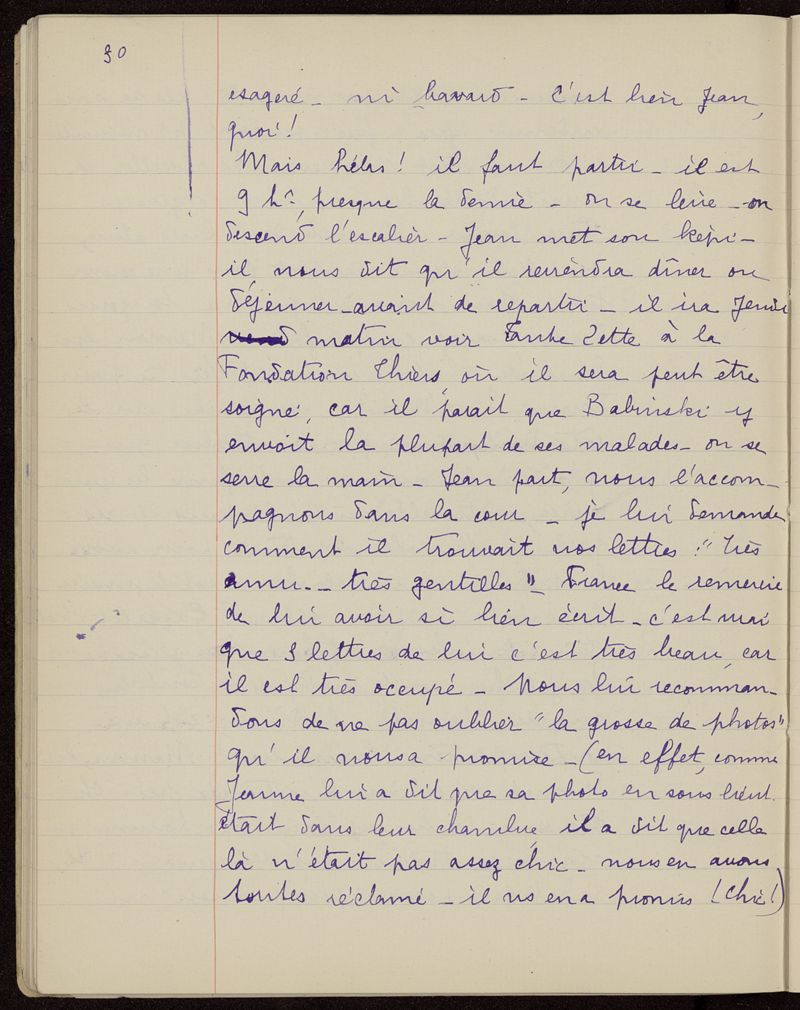 30
exagéré - ni bavard - C'est bien Jean,
quoi!
Mais hélas! il faut partir - il est
9 h. presque la demie - on se lève - on
descend l'escalier - Jean met son képi -
il nous dit qu'il reviendra dîner ou
déjeuner - avant de repartir - il ira
matin voir Tante Zette à la
Fondation Thiers, où il sera peut être
soigné, car il parait que Babinski y
envoit la plupart de ses malades - on se
serre la main - Jean part, nous l'accom-
pagnons dans la cour - je lui demande
comment il trouvait nos lettres : "très
- très gentilles" - France le remercie
de lui avoir si bien écrit - c'est vrai
que 3 lettres de lui c'est très beau, car
il est très occupé - Nous lui recomman-
dons de ne pas oublier "la grosse de photos"
qu'il nous a promise - (en effet, comme
Jeanne lui a dit que sa photo en sous lieut.
était dans leur chambre, il a dit que celle
là n'était pas assez chic - nous en avons
toutes réclamé - il ns en a promis ! chic!)